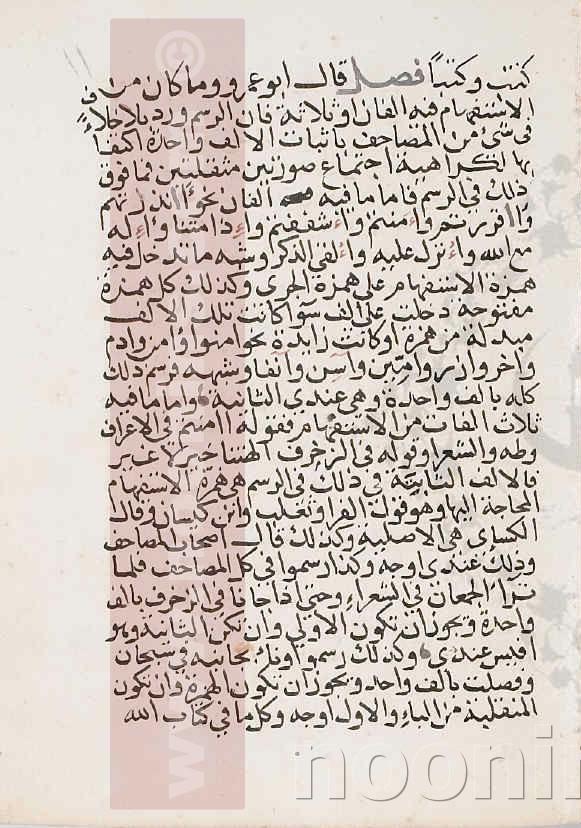 كتب وكتبا فصل قال ابو عمرو وما كان من
الاستفهام فيه الفان او ثلاثة فان الرسم ورد بلا خلاف
في شئ من المصاحف باثبات الالف واحدة اكتفاءً
بها لكراهية اجتماع صورتين متفقتين فما فوق
ذلك في الرسم فاما ما فيه الفان نحو اانذرتهم
واءقررتم واءمنتم واءشفقتم واءذا متنا واءله
مع الله واءنزل عليه واءلقي الذكر وشبهه مما دخل فيه
همزة الاستفهام على همزة اخرى وكذلك كل همزة
مفتوحة دخلت على الف سوا كانت تلك الالف
مبدلة من همزة او كانت زايدة نحو امنوا وامن وادم
واخر وازر وامين واسن وانفا وشبهه فرسم ذلك
كله بالف واحدة وهي عندي الثانية واما ما فيه
ثلاث الفات من الاستفهام فقوله اامنتم في الاعراف
وطه والشعرا وقوله في الزخرف االهتنا خير لا غير
فالالف الثابتة في ذلك في الرسم هي همزة الاستفهام
المحاجة اليها وهو قول الفرا وثعلب وابن كيسان وقال
الكسائي هي الاصلية وكذلك قال اصحاب المصاحف
وذلك عندي اوجه وكذا رسموا في كل المصاحف فلما
تراا الجمعان في الشعراء وحتى اذا جانا في الزخرف بالف
واحدة ويجوز ان تكون الاولى وان تكن الثانية وهو
اقيس عندي وكذلك رسموا ونا بجانبه في سبحان
وفصلت بالف واحد ويجوز ان تكون الهمزة وان تكون
المنقلبة من الياء والاول اوجه وكل ما في كتاب الله
noonin